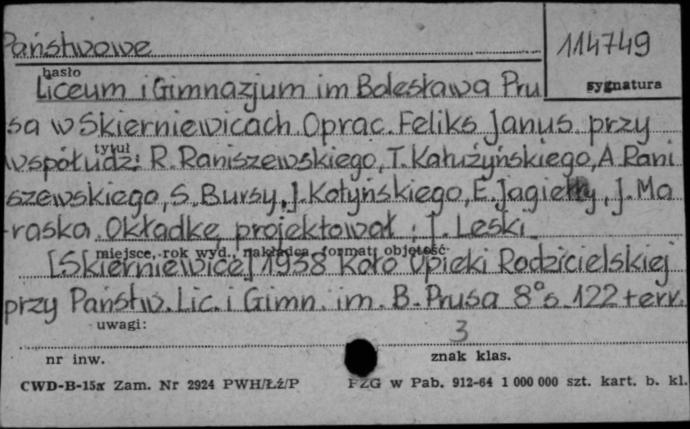 Państwowe
114749
hasło
sygnatura
Liceum i Gimnazjum im Bolesława Pru
sa w Skierniewicach Oprac. Feliks Janus przy
tytuł
współudz: R. Raniszewskiego, T. Kałużyńskiego, A Rani
szewskiego, S. Bursy, J. Kotyńskiego, E. Jagiełły, J. Ma
raska. Okładkę projektował: J. Leski
miejsce, rok wyd., nakładca, format, objętość
[Skierniewice] 1938 Koło Opieki Rodzicielskiej
przy Państw. Lic. i Gimn. im. B. Prusa 8° s. 122 + err.
uwagi:
3
nr inw.
znak klas.
CWD-B-15a Zam. Nr 2924 PWH/Łż/P
PZG w Pab. 912-64 1 000 000 szt. kart. b. kl.